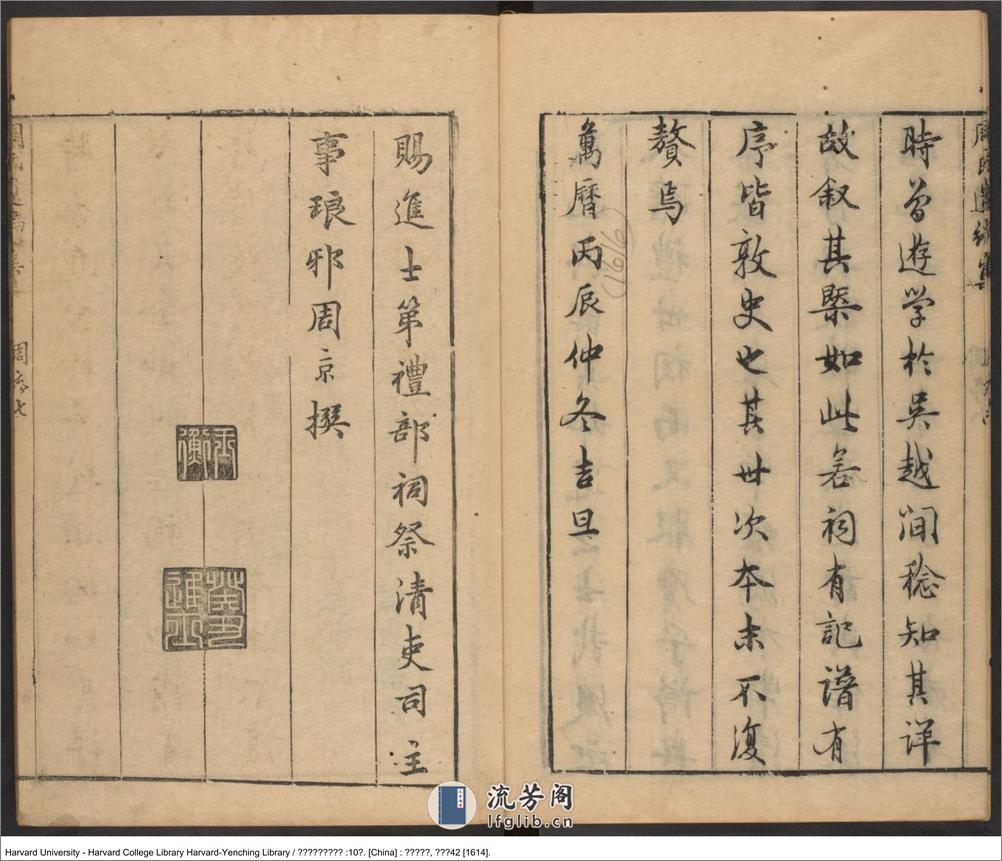 時曽遊学扵吳越間稔知其详
故叙其槩如此若祠有記譜有
序皆敦史也其世次本末不復
贅焉
萬曆丙辰仲冬吉旦
(1616)
賜進士第禮部祠祭清吏司主
事琅邪周京撰
流芳阁
lfglib.cn
Harvard University - Harvard College Library Harvard-Yenching Library / ????????? :10?. [China] : ?????, ???42 [1614].